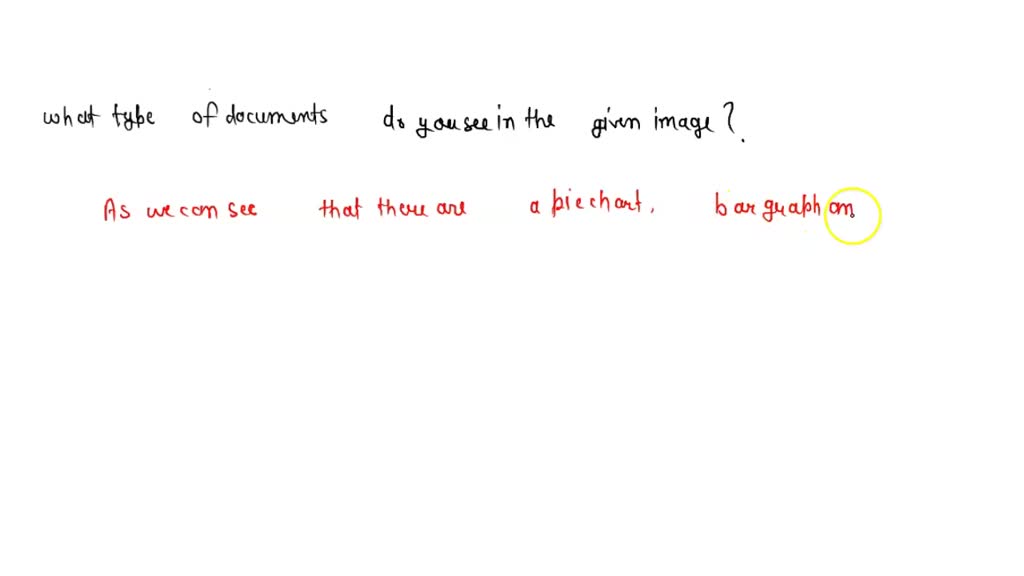 what type of documents do you see in the given image?
As we can see that there are a piechart, bar graph an